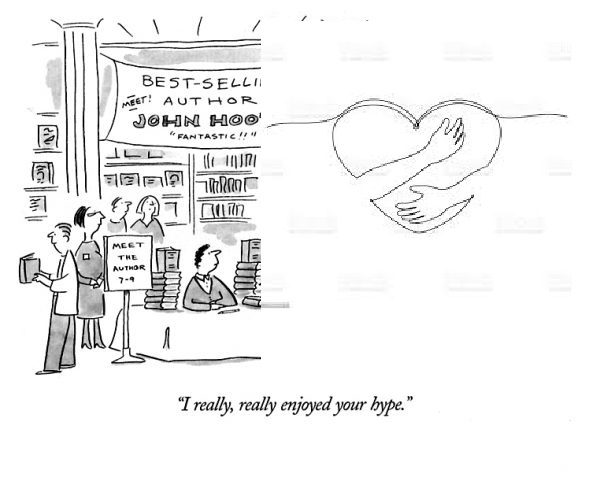 BEST-SELLI
MEET! AUTHOR
JOHN HOO
"FANTASTIC!!"
MEET
THE
AUTHOR
7-9
"I really, really enjoyed your hype."